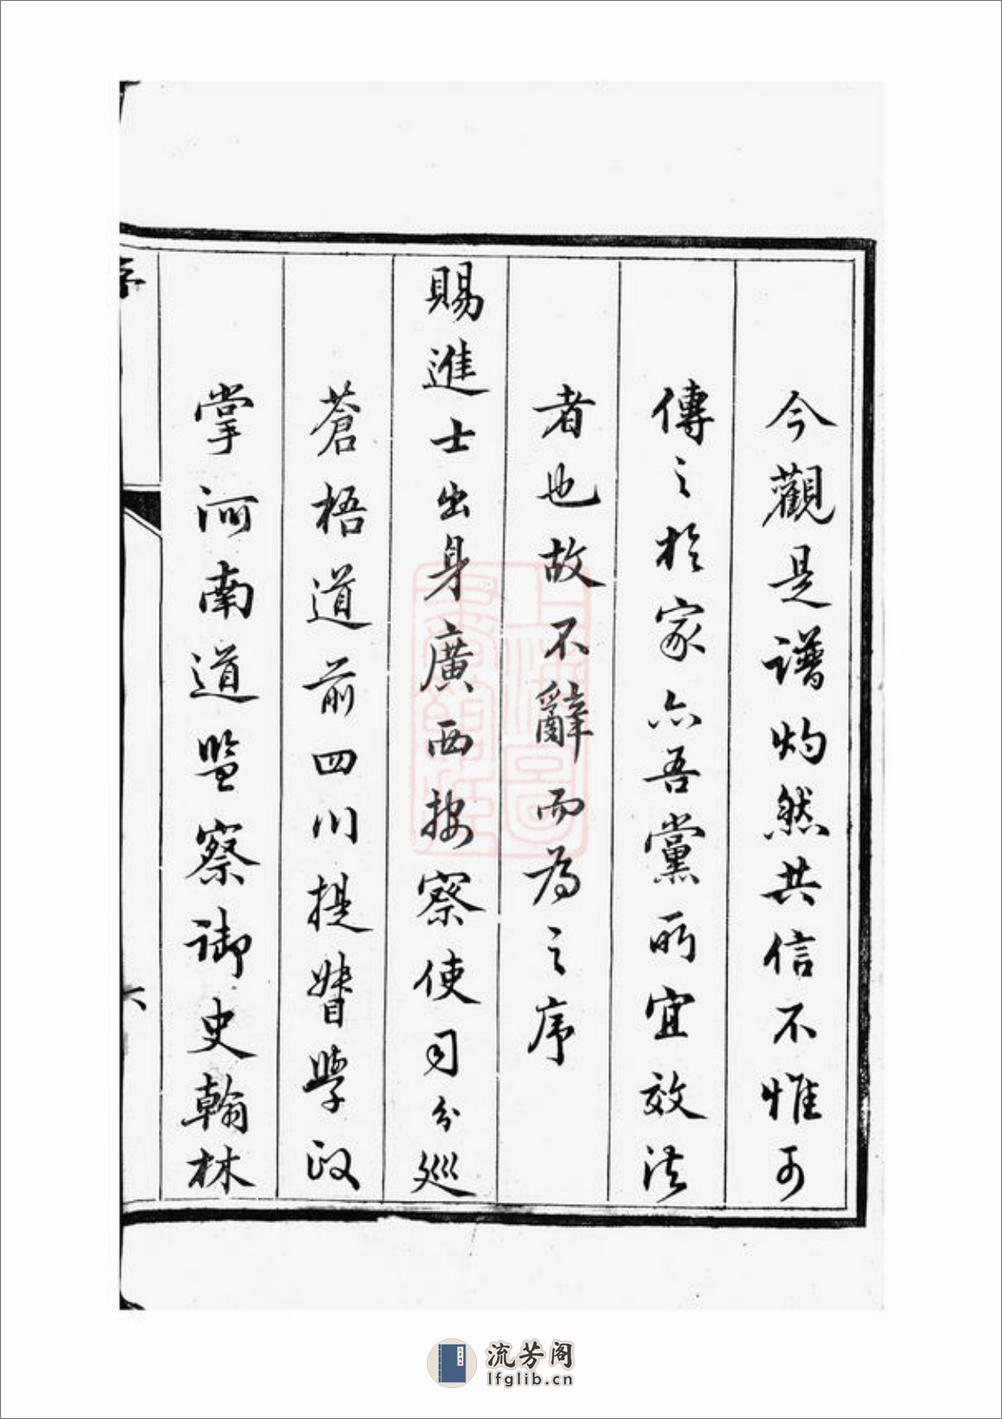 今觀是譜灼然共信不惟可
傳之於家亦吾黨所宜效法
者也故不辭而為之序
賜進士出身廣西按察使司分巡
蒼梧道前四川提督學政
掌河南道監察御史翰林
序
六
上海圖書館藏
流芳阁
lfglib.cn